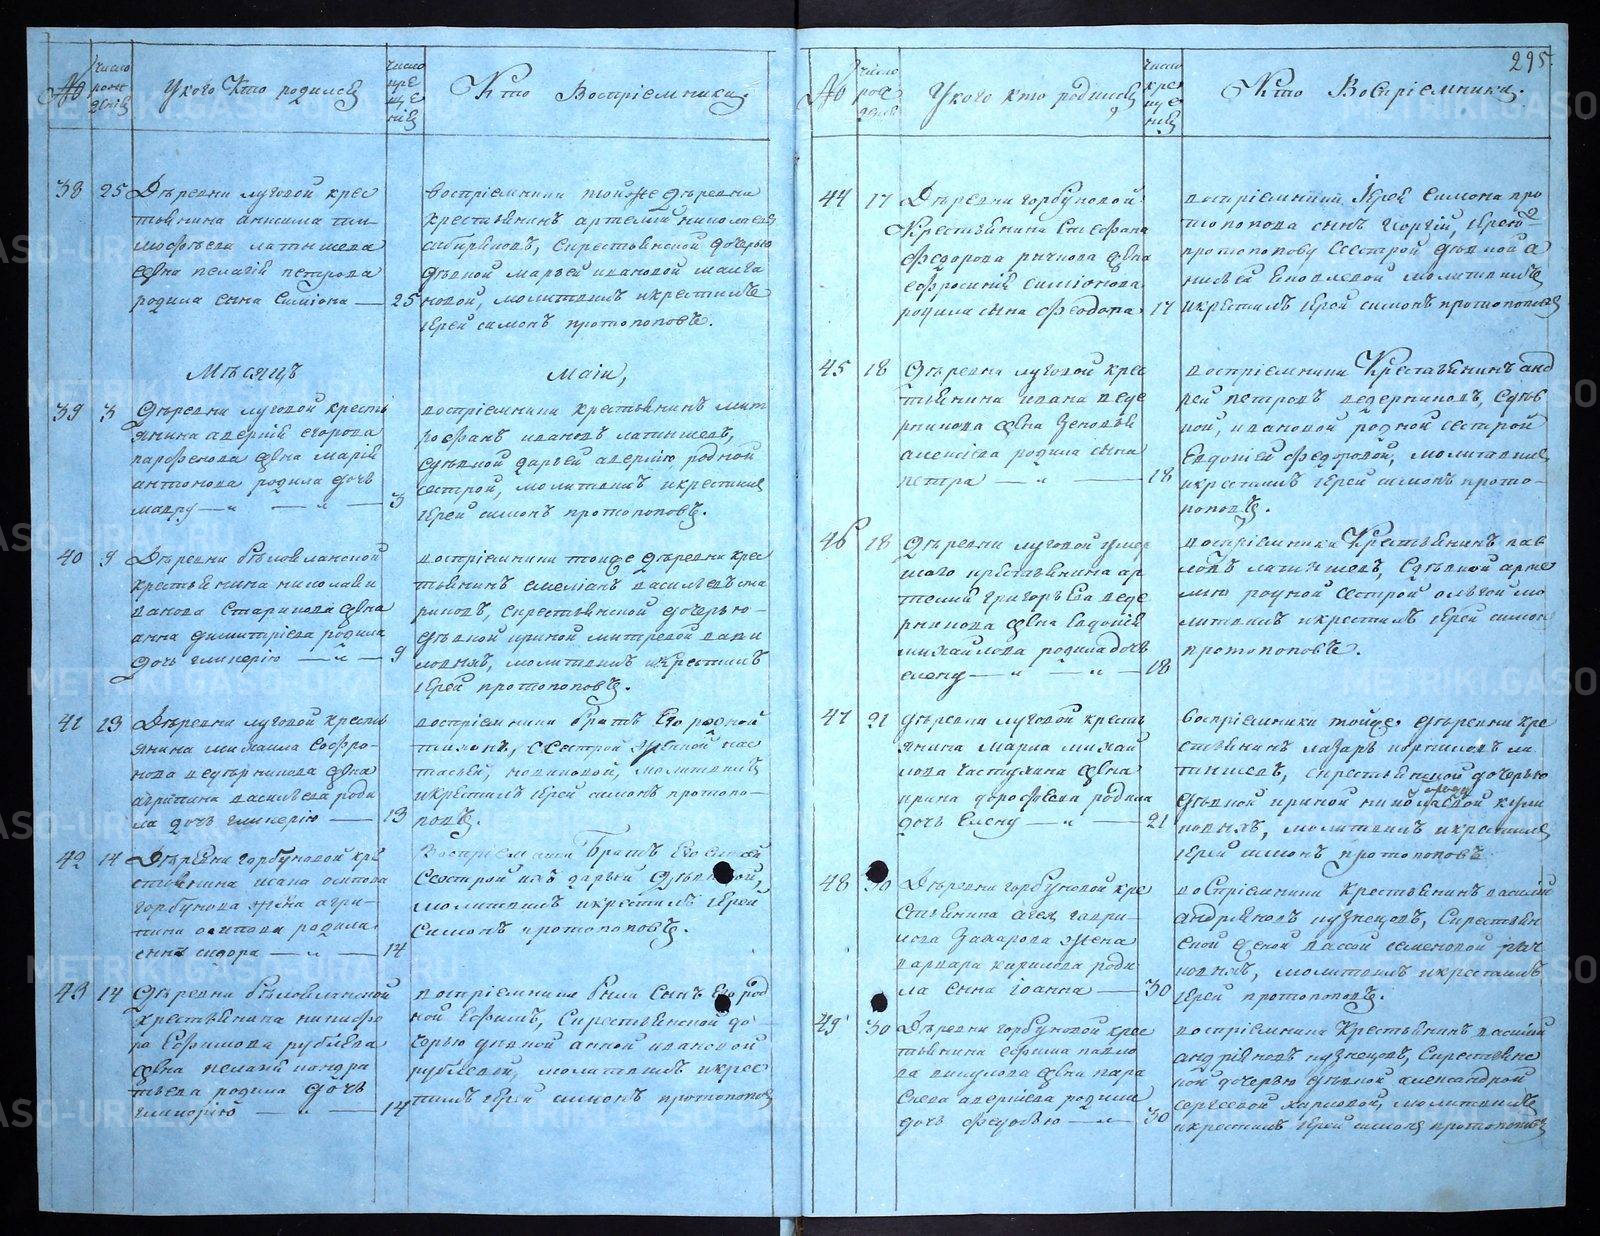 295
№
число рож дения
У кого Кто родился
число кре ще ния
Кто Воспрiемники.
38
25
Деревни луговой крес
тьянина анисима ти-
мофеева латышева
жена пелагiя петрова
родила сына Симiона —
25
воспрiемники тойже деревни
крестьянинъ артемiй николаевъ
сибиряковъ, скрестьянской дочерью
девкой марьей ивановой
новой, молитвилъ икрестилъ
iерей симонъ протопоповъ.
Месяцъ
Маiи,
39
3
деревни луговой кресть
янина аверкiя егорова
парфенова жена марiя
антонова родила дочь
мавру — " — " —
3
воспрiемники крестьянинъ мит
рофанъ ивановъ латышевъ,
сдевкой дарьей аверкiю родной
сестрой, молитвилъ икрестилъ
iерей симонъ протопоповъ.
40
9
Деревни
крестьянина николаи
ванова Старикова жена
анна димитрiева родила
дочь гликерiю — " —
9
воспрiемники тойже деревни крес
тьянинъ емелiанъ васильевъ ста
риковъ, скрестьянской дочерью
девкой ириной
молитвилъ икрестилъ
iерей протопоповъ.
41
13
Деревни луговой кресть
янина михаила Софро-
нова ведерникова жена
агрипина васильева роди
ла дочь гликерiю —
13
воспрiемники братъ Его родной
тихонъ, ссестрой
молитвилъ
икрестилъ iерей симонъ протопо-
повъ.
42
14
Деревни горбуновой кре
стьянина ивана осипова
горбунова жена агри-
пина осипова родила
сына сидора — " —
14
Воспрiемники Братъ Его
Сестрой ихъ дарьей девкой,
молитвилъ икрестилъ iерей
Симонъ протопоповъ.
43
14
Деревни
крестьянина никифо
ра Ефимова рублева
жена пелагiя кондра
тьева родила дочь
гликерiю — " —
14
воспрiемники были Сынъ Его род
ной Ефимъ, Скрестьянской до
черью девкой анной ивановой
рублевой, молитвилъ икрес
тилъ iерей симонъ протопоповъ
№
число рож дения
У кого кто родился
число кре ще ния
Кто Воспрiемники.
44
17
Деревни горбуновой
Крестьянина Стефана
федорова рычкова жена
ефросинiя симiонова
родила сына феодора
17
воспрiемники Iерея Симона про
топопова сынъ Георгiй, iерею
протопопову Сестрой девкой а
нисьей
молитвилъ
икрестилъ iерей симонъ протопоповъ
45
18
деревни луговой крес
тьянина ивана веде
рникова жена Зеновiя
алексiева родила сына
петра — " —
18
воспрiемники Крестьянинъ анд
рей петровъ ведерниковъ, Сдев
кой, ивановой родной сестрой
Евдокiей федоровой, молитвилъ
икрестилъ iерей симонъ прото-
поповъ.
46
18
Деревни луговой умер
шаго крестьянина ар
темiя григорьева веде
рникова жена Евдокiя
михайлова родила дочь
елену — " — " —
18
воспрiемники Крестьянинъ пав
ловъ латышевъ, Сдевкой арте
мiю родной сестрой ольгой мо
литвилъ икрестилъ iерей симонъ
протопоповъ.
47
21
деревни луговой кресть
янина марка михай
лова частухина жена
ирина дорофеева родила
дочь Елену — " —
21
Воспрiемники тойже деревни кре
стьянинъ лазарь корниловъ ла
тышевъ, скрестьянской дочерью
девкой ириной николаевой
молитвилъ икрестилъ
iерей симонъ протопоповъ
48
30
Деревни горбуновой кре
стьянина агея гаври-
лова Захарова жена
варвара кирилова роди
ла сына iоанна —
30
воспрiемники Крестьянинъ василiй
андреяновъ кузнецовъ, Скрестьян
ской женой вассой семеновой
молитвилъ икрестилъ
iерей протопоповъ.
49
30
Деревни горбуновой крес
тьянина ефима павло
ва викулова жена пара
Скева аверкiева родила
дочь федосью — " —
30
воспрiемники Крестьянинъ василiй
андреяновъ кузнецовъ, Скрестьянс
кой дочерью девкой александрой
сергеевой карповой, молитвилъ
икрестилъ iерей симонъ протопоповъ
METRIKI.GASO-URAL.RU